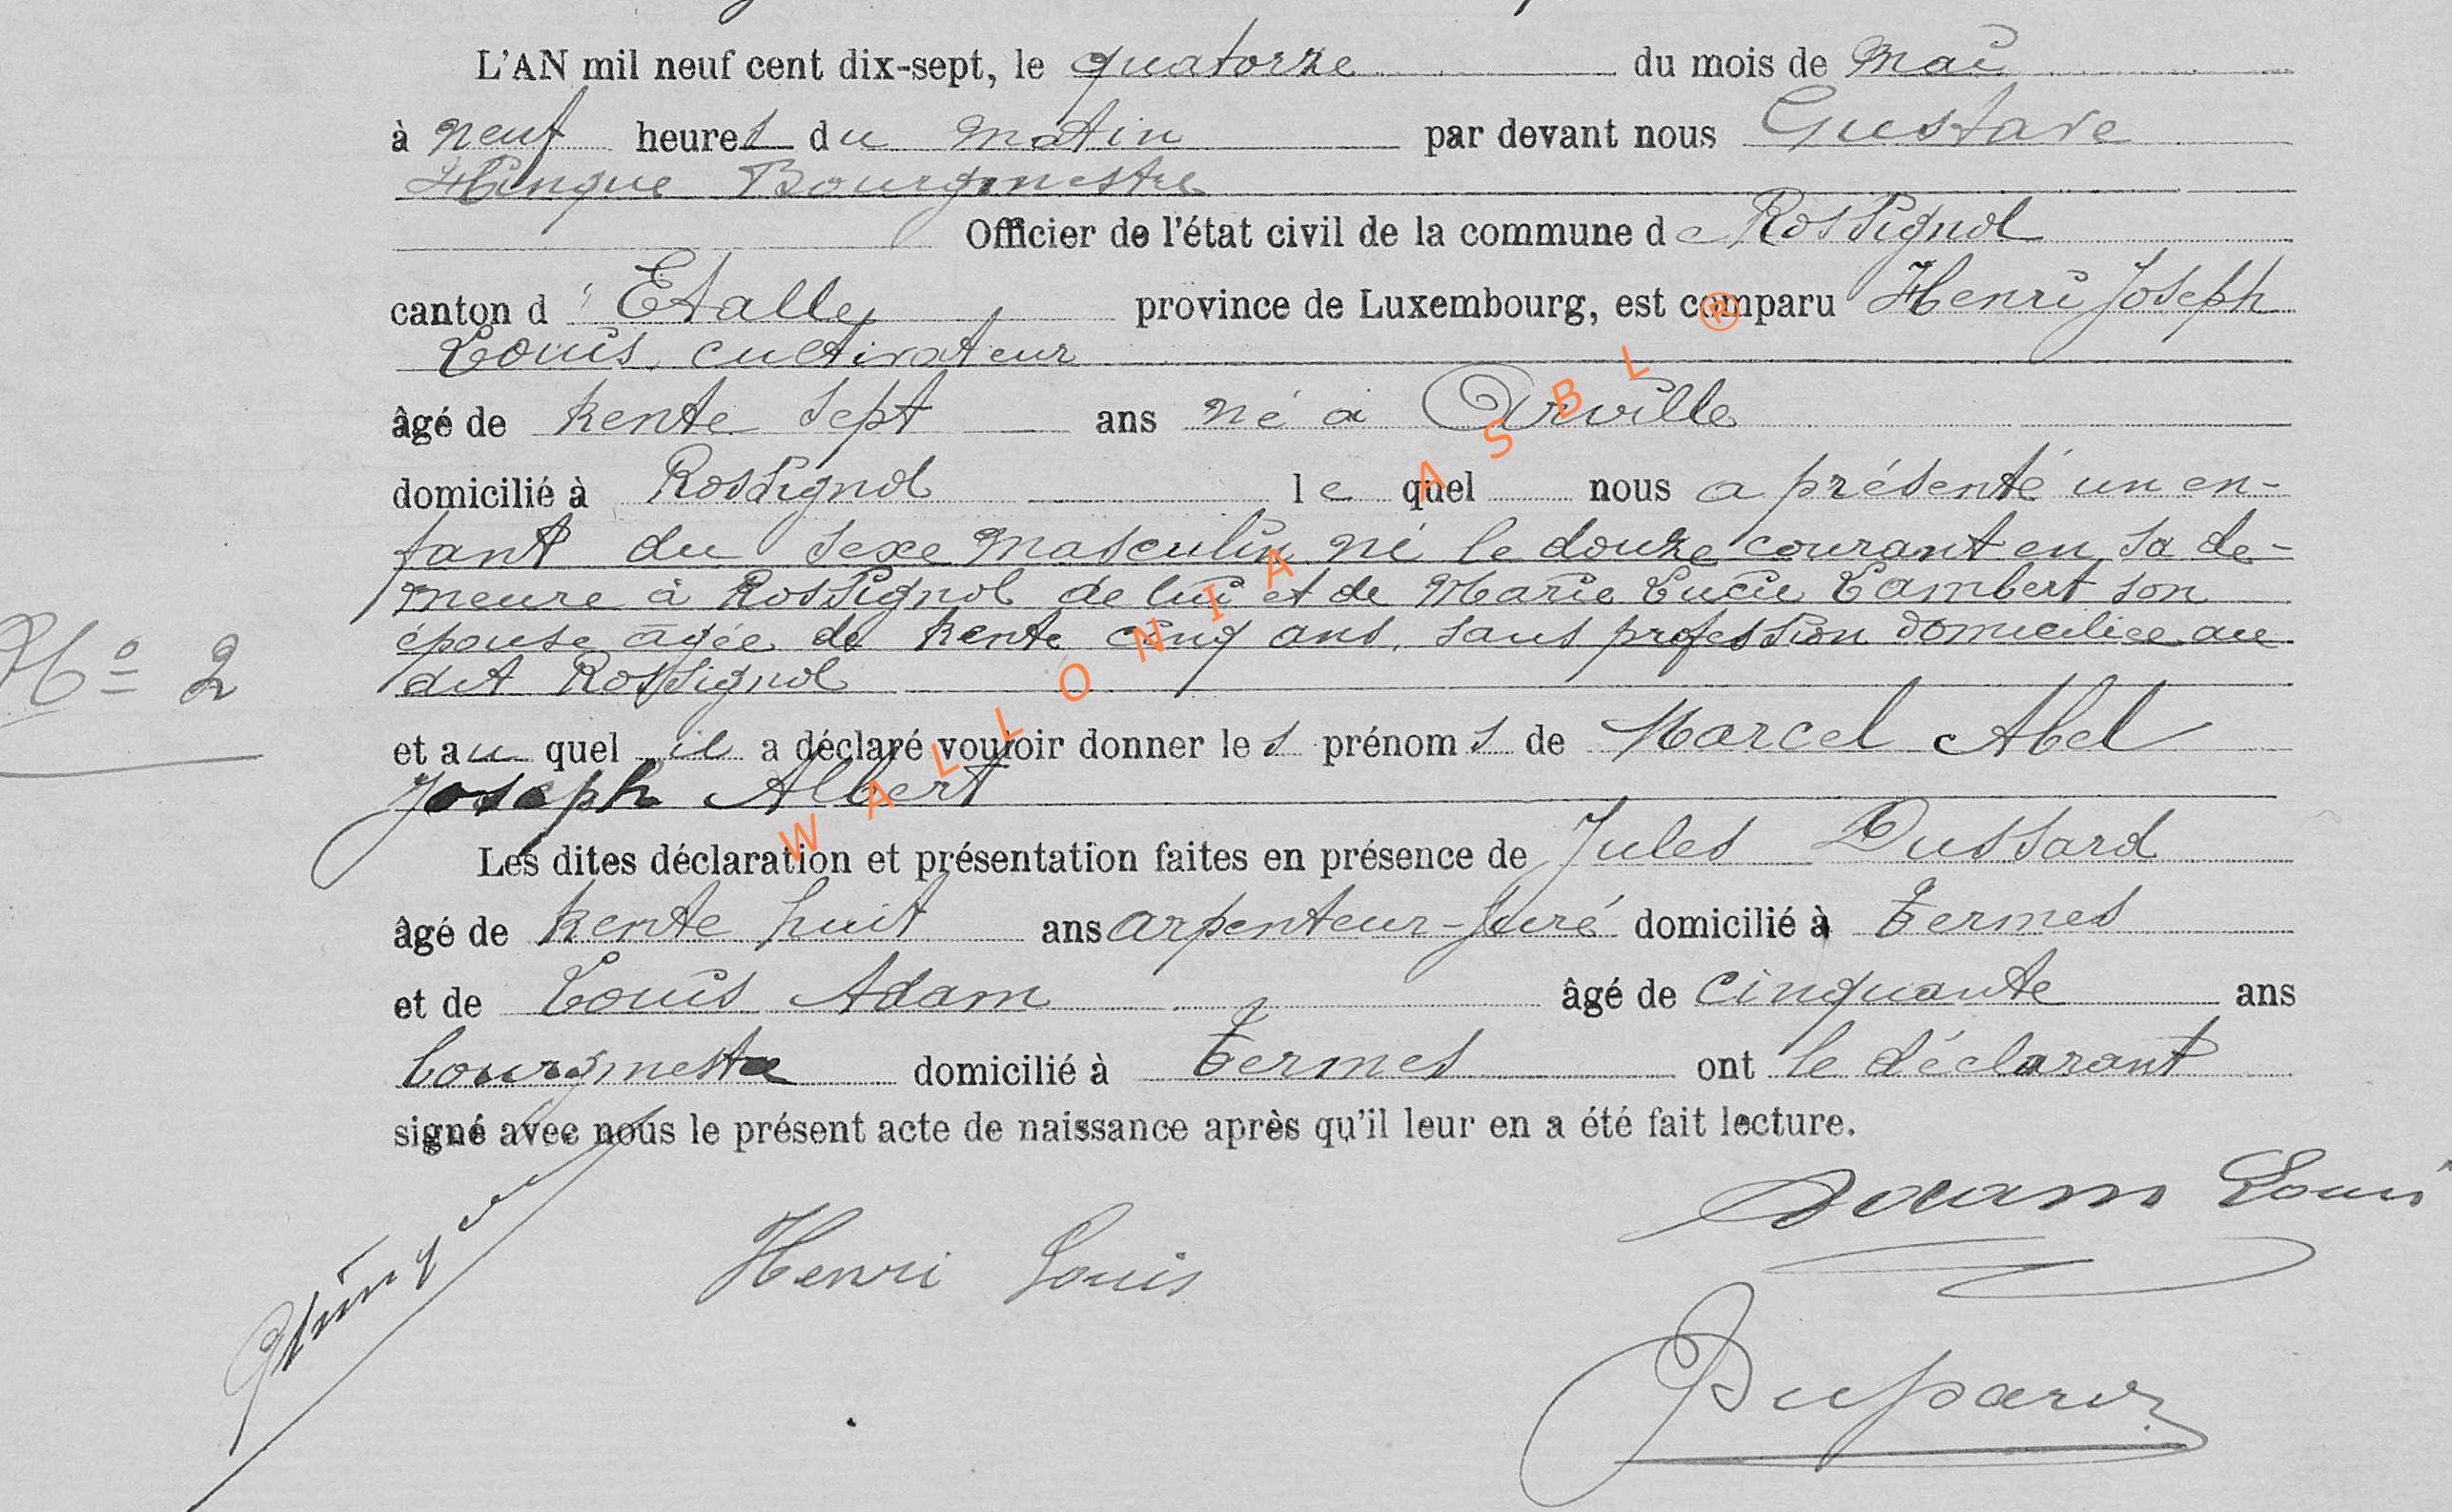 L'AN mil neuf cent dix-sept, le quatorze du mois de Mai
à neuf heures du matin par devant nous Gustave
Hinque Bourgmestre
Officier de l'état civil de la commune de Rossignol
canton d'Etalle province de Luxembourg, est comparu Henri Joseph
Louis, cultivateur
âgé de trente sept ans né à Orville
domicilié à Rossignol lequel nous a présenté un en-
fant du sexe masculin né le douze courant en sa de-
meure à Rossignol de lui et de Marie Lucie Lambert son
épouse âgée de trente cinq ans, sans profession domiciliée au
dit Rossignol
No 2
et au quel il a déclaré vouloir donner les prénoms de Marcel Abel
Joseph Albert
Les dites déclaration et présentation faites en présence de Jules Dussard
âgé de trente huit ans arpenteur-juré domicilié à Termes
et de Louis Adam âgé de cinquante ans
bourgmestre domicilié à Termes ont le déclarant
signé avec nous le présent acte de naissance après qu'il leur en a été fait lecture.
Adam Louis
Henri Louis
GHinque
Dussard
WALLONIA ASBL ®